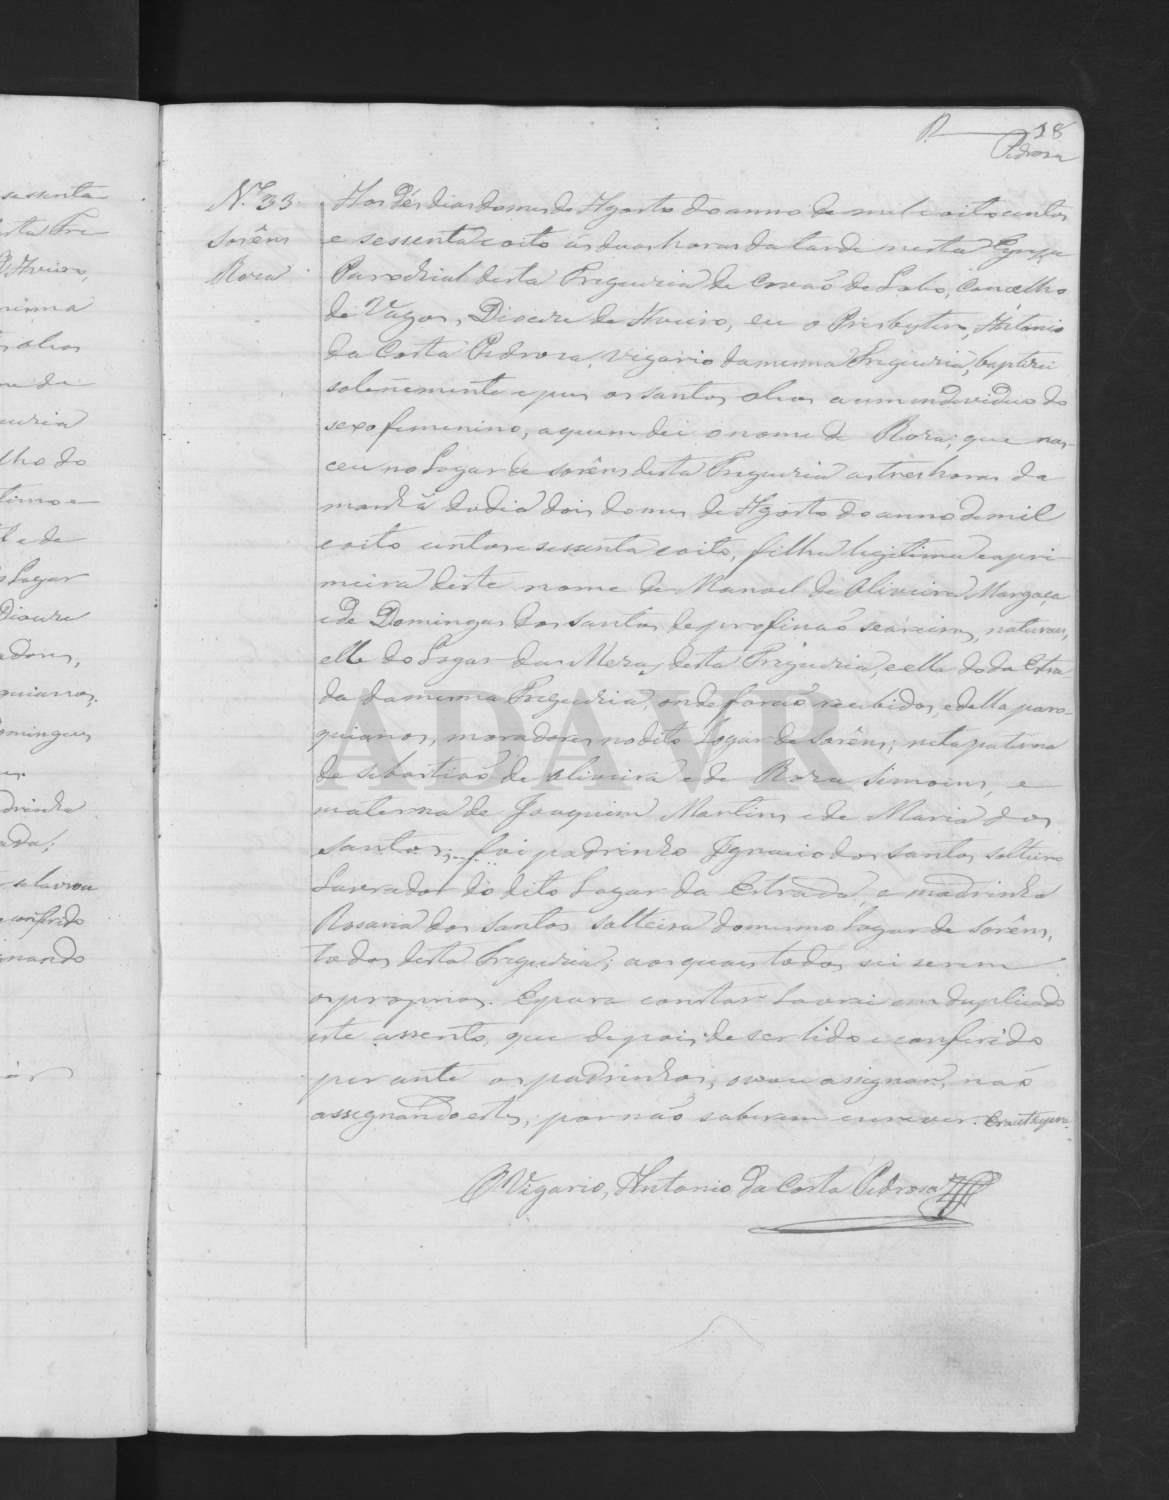 R. 18
Pedrosa
N.º 33
Sorêns
Roza
Aos Dés dias do mes de Agosto do anno de mil e oito centos
e sessenta e oito as duas horas da tarde nesta Egreja
Parochial desta Freguezia de Covaõ do Lobo, Concelho
de Vagos, Diocese de Aveiro, eu o Presbytero, Antonio
da Costa Pedrosa, Vigario da mesma Freguezia, baptizei
solennemente e pus os santos oleos a um individuo do
sexo femenino, a quem dei o nome de Roza; que nas-
ceu no Logar de Sorêns desta Freguezia as tres horas da
manhã do dia dois do mes de Agosto do anno de mil
e oito centos e sessenta e oito, filha legitima e a pri-
meira deste nome de Manoel de Oliveira Margaça
e de Domingas dos Santos de profissaõ seareiros, naturaes,
elle do Logar das Mezas, desta Freguezia, e ella do da Estra-
da da mesma Freguezia, onde foraõ recebidos, e della paro-
quianos, moradores no dito Logar de Sorêns; neta paterna
de Sebastiaõ de Oliveira e de Roza Simoens, e
materna de Joaquim Martins e de Maria dos
Santos; foi padrinho Ignacio dos Santos solteiro
Lavrador do dito Logar da Estrada, e madrinha
Rosaria dos Santos solteira do mesmo Logar de Sorêns,
todos desta Freguezia; aos quaes todos sei serem
os proprios. E para constar lavrei em duplicado
este assento, que depois de ser lido e conferido
perante os padrinhos, so eu assignar, naõ
assegnando estes, por naõ saberem escrever. Era ut supra.
O Vigario, Antonio da Costa Pedrosa
sessenta
sta Fre
d'Aveiro,
oleos
lho do
Logar
Diocese
adores,
quianos,
omingues
drinha
conferido
gnando
ADAVR